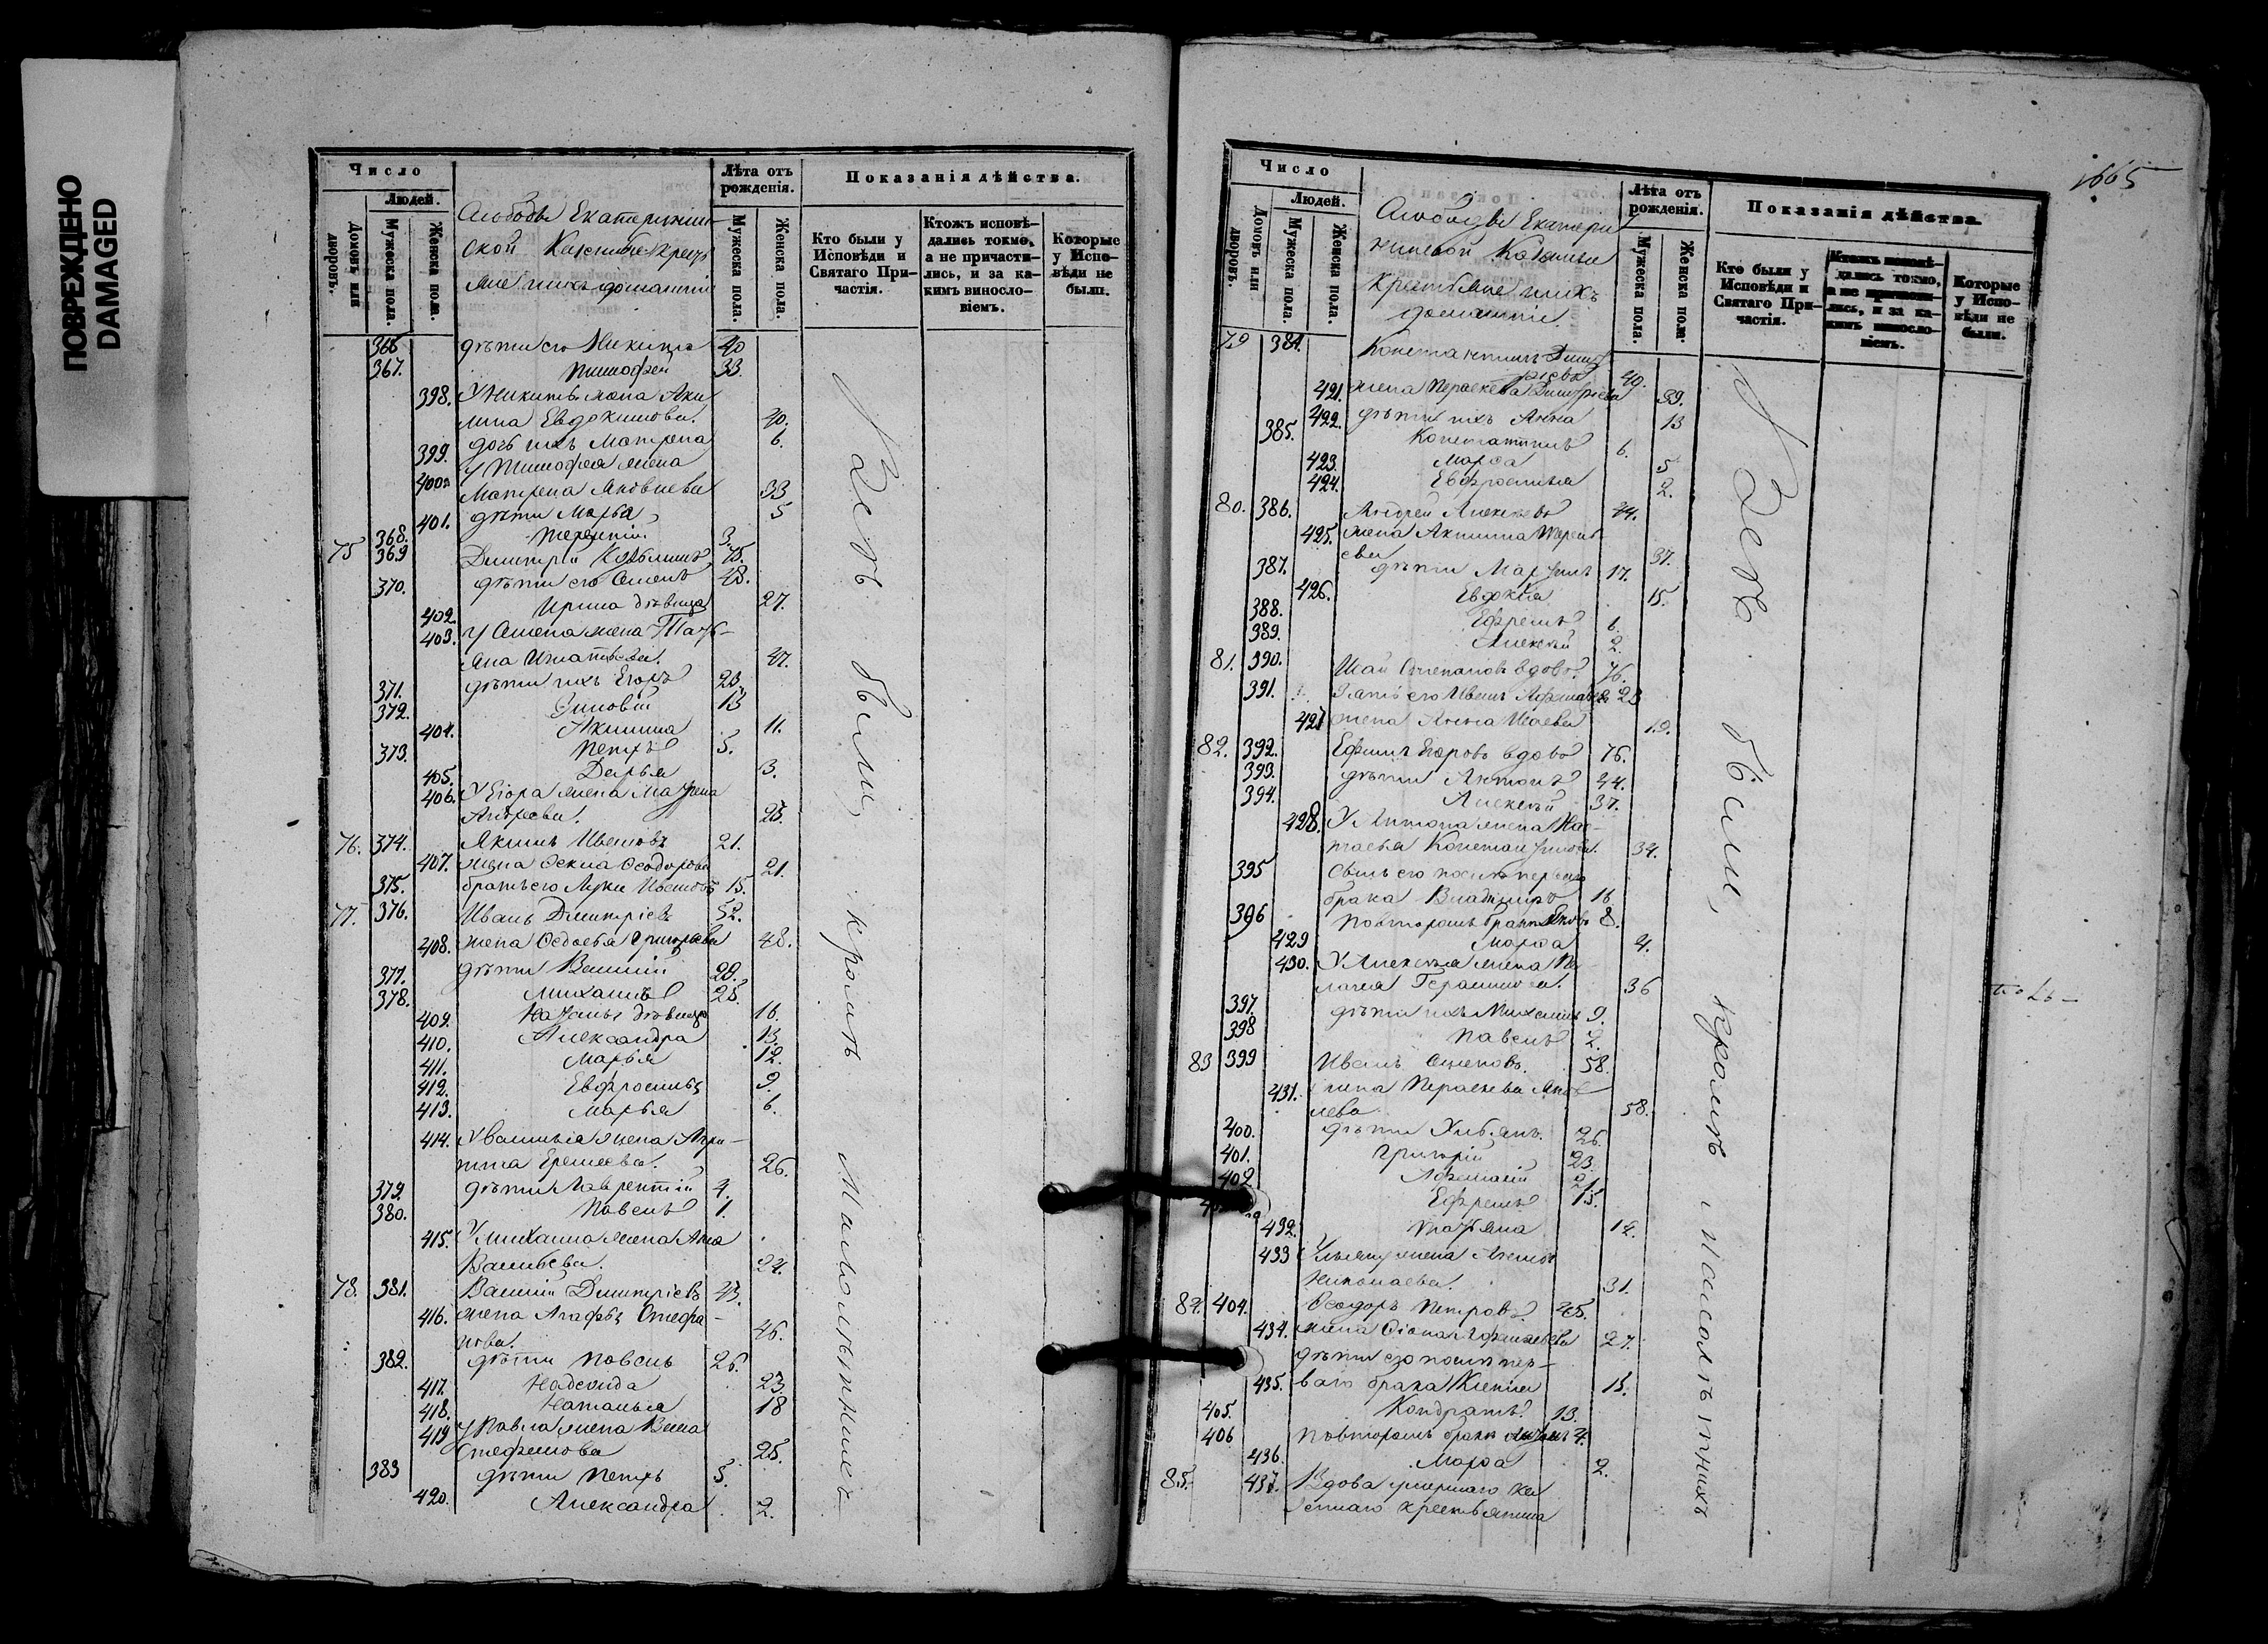 ПОВРЕЖДЕНО
DAMAGED
Число
Людей.
Домовъ или дворовъ.
Мужеска пола.
Женска пола.
Слободы Екатеринин
ской Казенные Кресть
яне и ихъ домашніи
Лѣта отъ рожденія.
Мужеска пола.
Женска пола.
Показанія дѣйства.
Кто были у Исповѣди и Святаго При-частія.
Ктожъ исповѣ-дались токмо, а не причасти-лись, и за ка-кимъ винослo-віемъ.
Которые у Испо-вѣди не были.
366 дѣти его Никита 40
367. Тимофей 33.
398. У Никиты жена Аки
лина Евдокимова. 40.
399. дочь ихъ Матрена 6.
400. У Тимофея жена
Матрена Яковлева 33
401. дѣти Марья 5
368. Терентій 3.
75 369 Димитрій 75.
370. дѣти его Семенъ 48.
402. Ирина дѣвица 27.
403. У Семена жена Татья-
на Игнатьева. 47.
371. дѣти ихъ Егоръ 23.
372. Зиновій 13
404. Акилина 11.
373. Петръ 5.
405. Дарья 3.
406. У Егора жена Матрена
Андреева. 23.
76. 374. Якимъ Ивановъ 21.
407. жена Фекла Феодорова 21.
375. братъ его Лука Ивановъ 15.
77. 376. Иванъ Димитріевъ 52.
408. жена Федосья Григорьева 48.
377. дѣти Василій 29.
378. Михаилъ 25.
409. Наталья дѣвица 16.
410. Александра 13.
411. Марья 12.
412. Евфросинья 9.
413. Марья 6.
414. У Василья жена Агри-
пина Еремеева. 26.
379. дѣти Лаврентій 4.
380. Павелъ 1.
415. У Михаила жена Анна
Васильева. 24.
78. 381. Василій Димитріевъ 43.
416. жена Агафья Стефа-
нова. 46.
382. дѣти Павелъ 26.
417. Надежда 23.
418. Наталья 18
419 У Павла жена
Стефанова 25.
383 дѣти Петръ 5.
420. Александра 2.
Здесь были, кромѣ Малолѣтнихъ
1665
Число
Людей.
Домовъ или дворовъ.
Мужеска пола.
Женска пола.
Слободы Екатери
нинской Казенные
Крестьяне и ихъ
домашніи.
Лѣта отъ рожденія.
Мужеска пола.
Женска пола.
Показанія дѣйства.
Кто были у Исповѣди и Святаго При-частія.
Ктожъ исповѣ-дались токмо, а не причасти-лись, и за ка-кимъ винослo-віемъ.
Которые у Испо-вѣди не были.
79 384. Константинъ Димит
ріевъ 40.
421. жена Параскева Димитріева 39.
422. дѣти ихъ Анна 13
385. Константинъ 6.
423. Марѳа 5
424. Евфросинья 2.
80. 386. Андрей Алексеевъ 44.
425. жена Акилина Терент
ева 37.
387. дѣти Мартинъ 17.
426. Евдокія 15.
388. Ефремъ 6.
389. Алексѣй 2.
81. 390. Исай Степановъ вдовъ 76.
391. Зять его Иванъ Афанасьевъ 23
427 жена Анна Исаева 19.
82. 392. Ефимъ Егоровъ вдовъ 76.
393. дѣти Антонъ 44.
394. Алексѣй 37.
428. У Антона жена Нас-
тасья Константинова. 34.
395 Сынъ его послѣ перваго
брака Владиміръ 16
396 повторомъ бракѣ Яковъ 8.
429 Марѳа 4.
430. У Алексѣя жена Пе
лагея Герасимова. 36
397. дѣти ихъ Михаилъ 9.
398 Павелъ 2.
83 399 Иванъ Семеновъ. 58.
431. жена Параскева Яков
лева 58.
400. дѣти Ульянъ. 26.
401. Григорій 23.
402 Афанасій 21.
Ефремъ 15.
432. Татьяна 14.
433 У Ульяна жена
Николаева. 31.
84. 404. Феодоръ Петровъ 45.
434. жена Афанасьева 27.
дѣти его послѣ пер-
435. ваго брака Ксенія 15.
405. Кондратъ. 13.
406 повторомъ бракѣ 4.
436. Марѳа 2.
85. 437. Вдова умершаго ка
зеннаго крестьянина
Здесь были, кромѣ малолѣтнихъ